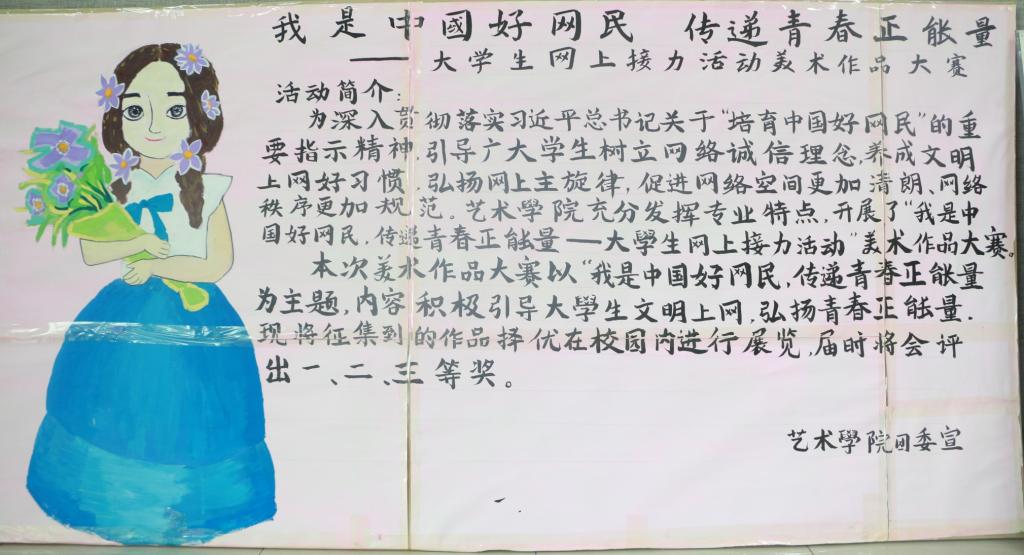 我是中國好网民 传递青春正能量
——大学生网上接力活动美术作品大赛
活动简介:
为深入贯彻落实习近平总书记关于“培育中国好网民”的重
要指示精神,引导广大学生树立网络诚信理念,养成文明
上网好习惯,弘扬网上主旋律,促进网络空间更加清朗、网络
秩序更加规范。艺术學院充分发挥专业特点,开展了“我是中
国好网民,传递青春正能量——大學生网上接力活动”美术作品大赛。
本次美术作品大赛以“我是中国好网民,传递青春正能量
为主题,内容积极引导大學生文明上网,弘扬青春正能量.
现将征集到的作品择优在校园内进行展览,届时将会评
出一、二、三等奖。
艺术學院团委宣